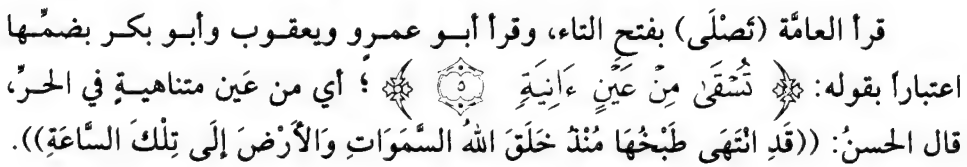 قرأ العامَّة (تَصْلَى) بفتحِ التاء، وقرأ أبو عمرٍو ويعقوب وأبو بكر بضمِّها
اعتباراً بقوله: ﴿ تُسْقَىٰ مِنْ عَيْنٍ ءَانِيَةٍ ٥ ﴾ ؛ أي من عَين متناهيةٍ في الحرِّ،
قال الحسنُ: ((قَدِ انْتَهَى طَبْخُهَا مُنْذُ خَلَقَ اللهُ السَّمَوَاتِ وَالأَرْضَ إِلَى تِلْكَ السَّاعَةِ)).